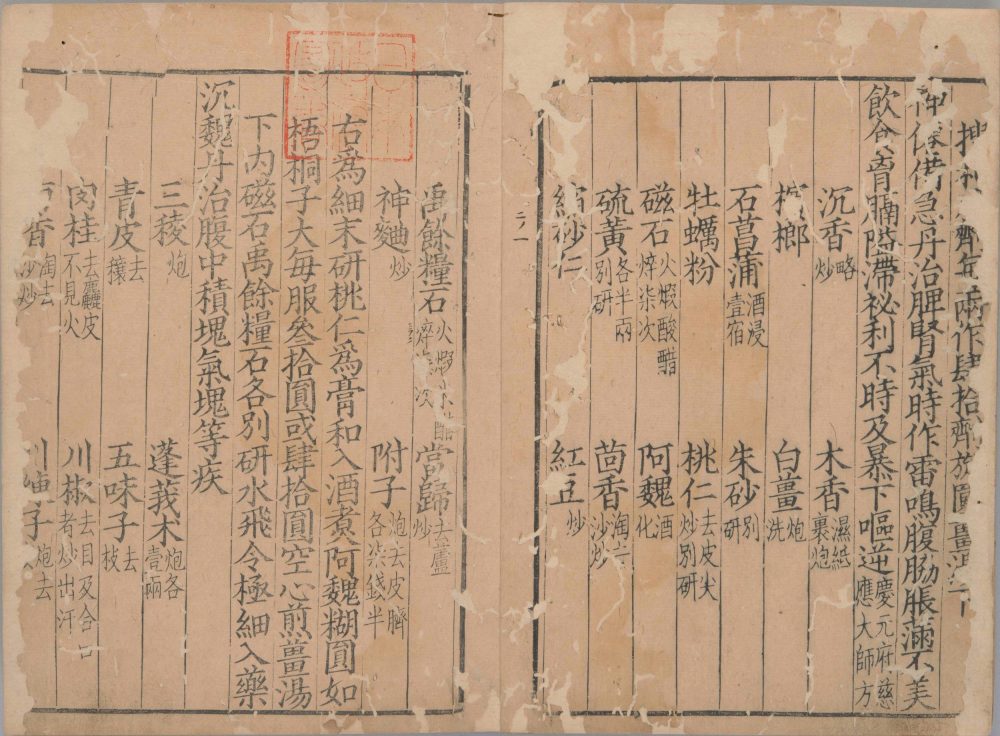 齊每兩作肆拾齊旋圓薑湯
神僊備急丹治脾腎氣時作雷鳴腹脇脹滿不美
飲食胃膈隘滯祕利不時及暴下嘔逆慶元府慈應大師方
沉香略炒 木香濕紙裹炮
檳榔 白薑炮洗
石菖蒲酒浸壹宿 朱砂別研
牡蠣粉 桃仁去皮尖炒別研
磁石火煆酸醋焠柒次 阿魏酒化
硫黃各半兩別研 茴香淘去沙炒
縮砂仁 紅豆炒
禹餘糧石火煆米醋焠次 當歸去蘆炒
神麯炒 附子炮去皮臍各柒錢半
右爲細末研桃仁爲膏和入酒煮阿魏糊圓如
梧桐子大每服叄拾圓或肆拾圓空心煎薑湯
下内磁石禹餘糧石各別研水飛令極細入藥
沉魏丹治腹中積塊氣塊等疾
三稜炮 蓬莪朮炮各壹兩
青皮去穰 五味子去枝
肉桂去麤皮不見火 川椒去目及合口者炒出汗
香淘去沙炒 川楝子炮去